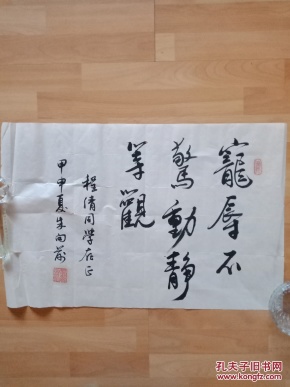 寵辱不
驚動静
等觀
程倩同学存正
甲申夏朱向前
孔夫子旧书网